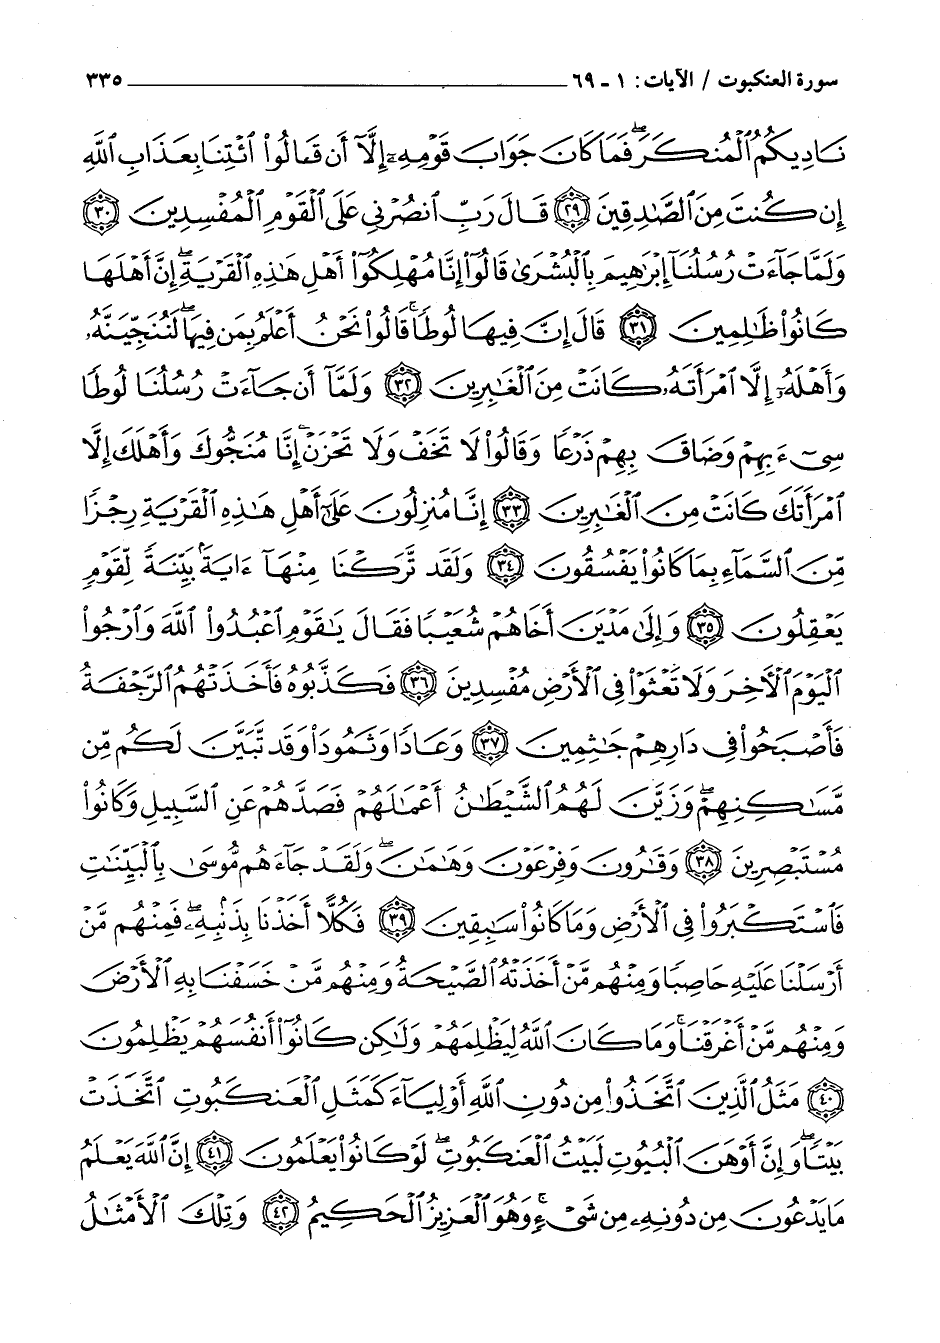 سورة العنكبوت / الآيات: ١ ـ ٦٩ ٣٣٥
نَادِيكُمُ ٱلْمُنكَرَ ۖ فَمَا كَانَ جَوَابَ قَوْمِهِۦٓ إِلَّآ أَن قَالُوا۟ ٱئْتِنَا بِعَذَابِ ٱللَّهِ
إِن كُنتَ مِنَ ٱلصَّٰدِقِينَ ٢٩ قَالَ رَبِّ ٱنصُرْنِى عَلَى ٱلْقَوْمِ ٱلْمُفْسِدِينَ ٣٠
وَلَمَّا جَآءَتْ رُسُلُنَآ إِبْرَٰهِيمَ بِٱلْبُشْرَىٰ قَالُوٓا۟ إِنَّا مُهْلِكُوٓا۟ أَهْلِ هَٰذِهِ ٱلْقَرْيَةِ ۖ إِنَّ أَهْلَهَا
كَانُوا۟ ظَٰلِمِينَ ٣١ قَالَ إِنَّ فِيهَا لُوطًا ۚ قَالُوا۟ نَحْنُ أَعْلَمُ بِمَن فِيهَا ۖ لَنُنَجِّيَنَّهُۥ
وَأَهْلَهُۥٓ إِلَّا ٱمْرَأَتَهُۥ كَانَتْ مِنَ ٱلْغَٰبِرِينَ ٣٢ وَلَمَّآ أَن جَآءَتْ رُسُلُنَا لُوطًا
سِىٓءَ بِهِمْ وَضَاقَ بِهِمْ ذَرْعًا وَقَالُوا۟ لَا تَخَفْ وَلَا تَحْزَنْ ۖ إِنَّا مُنَجُّوكَ وَأَهْلَكَ إِلَّا
ٱمْرَأَتَكَ كَانَتْ مِنَ ٱلْغَٰبِرِينَ ٣٣ إِنَّا مُنزِلُونَ عَلَىٰٓ أَهْلِ هَٰذِهِ ٱلْقَرْيَةِ رِجْزًا
مِّنَ ٱلسَّمَآءِ بِمَا كَانُوا۟ يَفْسُقُونَ ٣٤ وَلَقَد تَّرَكْنَا مِنْهَآ ءَايَةًۢ بَيِّنَةً لِّقَوْمٍ
يَعْقِلُونَ ٣٥ وَإِلَىٰ مَدْيَنَ أَخَاهُمْ شُعَيْبًا فَقَالَ يَٰقَوْمِ ٱعْبُدُوا۟ ٱللَّهَ وَٱرْجُوا۟
ٱلْيَوْمَ ٱلْأَخِرَ وَلَا تَعْثَوْا۟ فِى ٱلْأَرْضِ مُفْسِدِينَ ٣٦ فَكَذَّبُوهُ فَأَخَذَتْهُمُ ٱلرَّجْفَةُ
فَأَصْبَحُوا۟ فِى دَارِهِمْ جَٰثِمِينَ ٣٧ وَعَادًا وَثَمُودَا۟ وَقَد تَّبَيَّنَ لَكُم مِّن
مَّسَٰكِنِهِمْ ۖ وَزَيَّنَ لَهُمُ ٱلشَّيْطَٰنُ أَعْمَٰلَهُمْ فَصَدَّهُمْ عَنِ ٱلسَّبِيلِ وَكَانُوا۟
مُسْتَبْصِرِينَ ٣٨ وَقَٰرُونَ وَفِرْعَوْنَ وَهَٰمَٰنَ ۖ وَلَقَدْ جَآءَهُم مُّوسَىٰ بِٱلْبَيِّنَٰتِ
فَٱسْتَكْبَرُوا۟ فِى ٱلْأَرْضِ وَمَا كَانُوا۟ سَٰبِقِينَ ٣٩ فَكُلًّا أَخَذْنَا بِذَنۢبِهِۦ ۖ فَمِنْهُم مَّنْ
أَرْسَلْنَا عَلَيْهِ حَاصِبًا وَمِنْهُم مَّنْ أَخَذَتْهُ ٱلصَّيْحَةُ وَمِنْهُم مَّنْ خَسَفْنَا بِهِ ٱلْأَرْضَ
وَمِنْهُم مَّنْ أَغْرَقْنَا ۚ وَمَا كَانَ ٱللَّهُ لِيَظْلِمَهُمْ وَلَٰكِن كَانُوٓا۟ أَنفُسَهُمْ يَظْلِمُونَ
٤٠ مَثَلُ ٱلَّذِينَ ٱتَّخَذُوا۟ مِن دُونِ ٱللَّهِ أَوْلِيَآءَ كَمَثَلِ ٱلْعَنكَبُوتِ ٱتَّخَذَتْ
بَيْتًا ۖ وَإِنَّ أَوْهَنَ ٱلْبُيُوتِ لَبَيْتُ ٱلْعَنكَبُوتِ ۖ لَوْ كَانُوا۟ يَعْلَمُونَ ٤١ إِنَّ ٱللَّهَ يَعْلَمُ
مَا يَدْعُونَ مِن دُونِهِۦ مِن شَىْءٍ ۚ وَهُوَ ٱلْعَزِيزُ ٱلْحَكِيمُ ٤٢ وَتِلْكَ ٱلْأَمْثَٰلُ